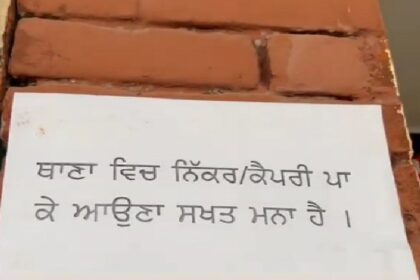 ਥਾਣਾ ਵਿਚ ਨਿੱਕਰ/ਕੈਪਰੀ ਪਾ
ਕੇ ਆਉਣਾ ਸਖਤ ਮਨਾ ਹੈ ।